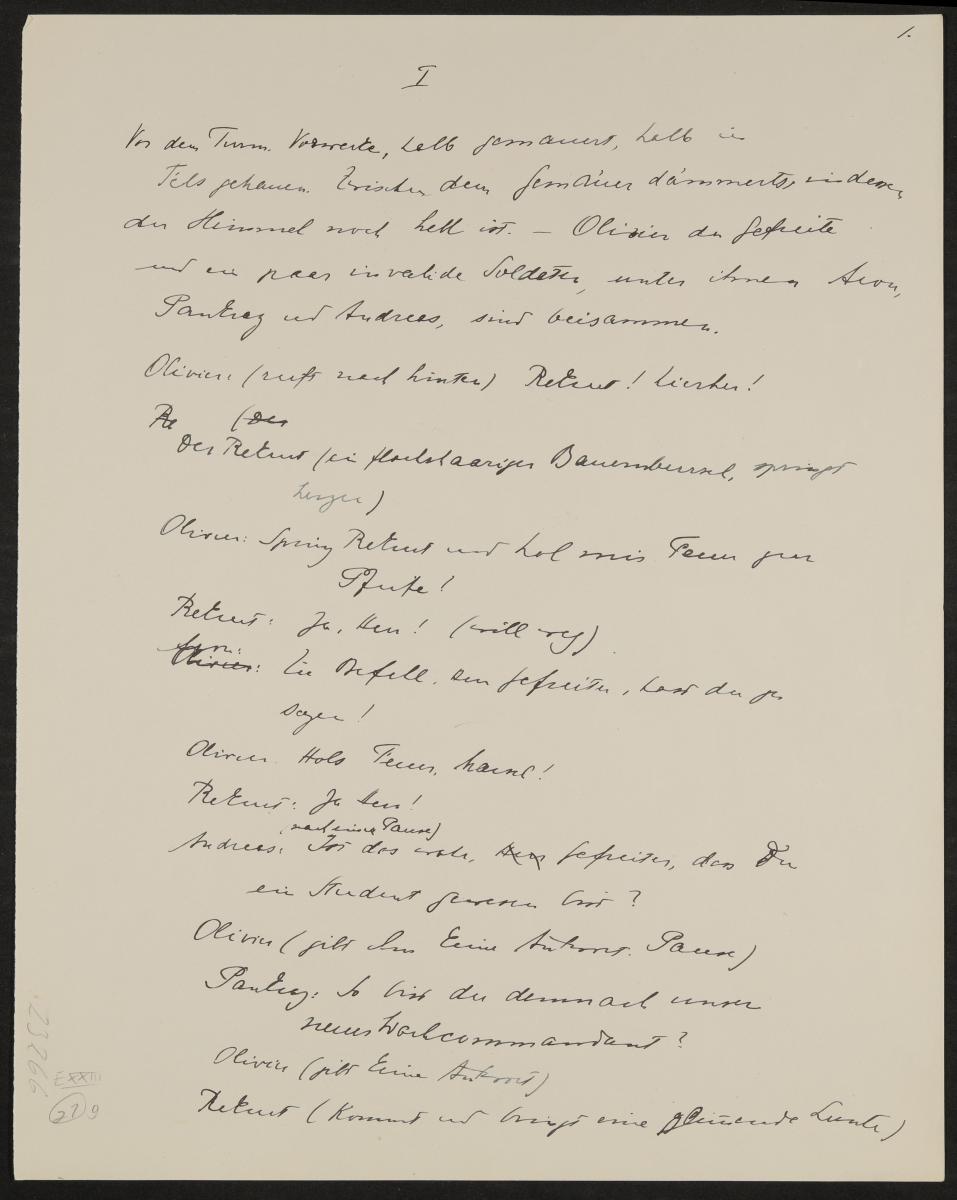 1.
I
Vor dem Turm. Vorwerke, halb gemauert, halb in
Fels gehauen. Zwischen dem Gemäuer dämmerts, indessen
der Himmel noch hell ist. – Olivier der Gefreite
und ein paar invalide Soldaten, unter ihnen Aron,
Pankraz und Andreas, sind beisammen.
Olivier: (ruft nach hinten) Rekrut! hierher!
Re (Der
Der Rekrut (ein flachshaariger Bauernbursch, springt
herzu)
Olivier: Spring Rekrut und hol mir Feuer zur
Pfeife!
Rekrut: Ja, Herr! (will weg)
Aron:
Olivier: Zu Befehl, Herr Gefreiter, hast du zu
sagen!
Olivier Hols Feuer, Marsch!
Rekrut: Ja Herr!
(nach einer Pause)
Andreas: Ist das wahr, Herr Gefreiter, dass Du
ein Student gewesen bist?
Olivier (gibt ihm keine Antwort. Pause)
Pankraz: So bist du demnach unser
neuer Wachcommandant?
Olivier (gibt keine Antwort)
Rekrut (kommt und bringt eine glimmende Lunte)
23266
EXXIII
22 9